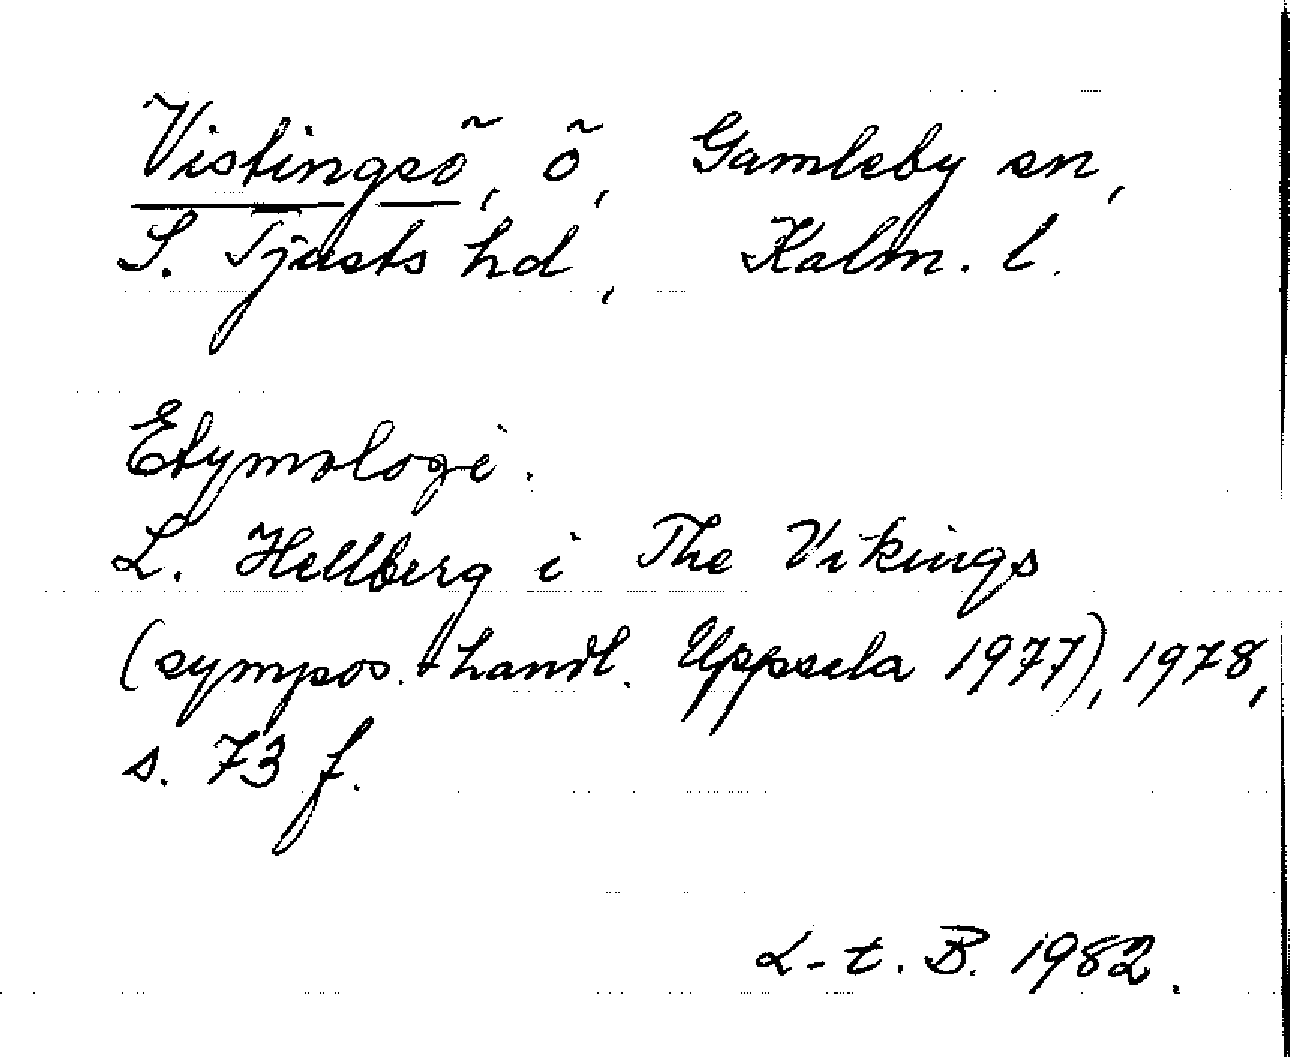 Vistingsö, ö, Gamleby sn,
S. Tjusts hd, Kalm. l.
Etymologi.
L. Hellberg i The Vikings
(sympos.handl. Uppsala 1977), 1978,
s. 73 f.
L-t. B. 1982.